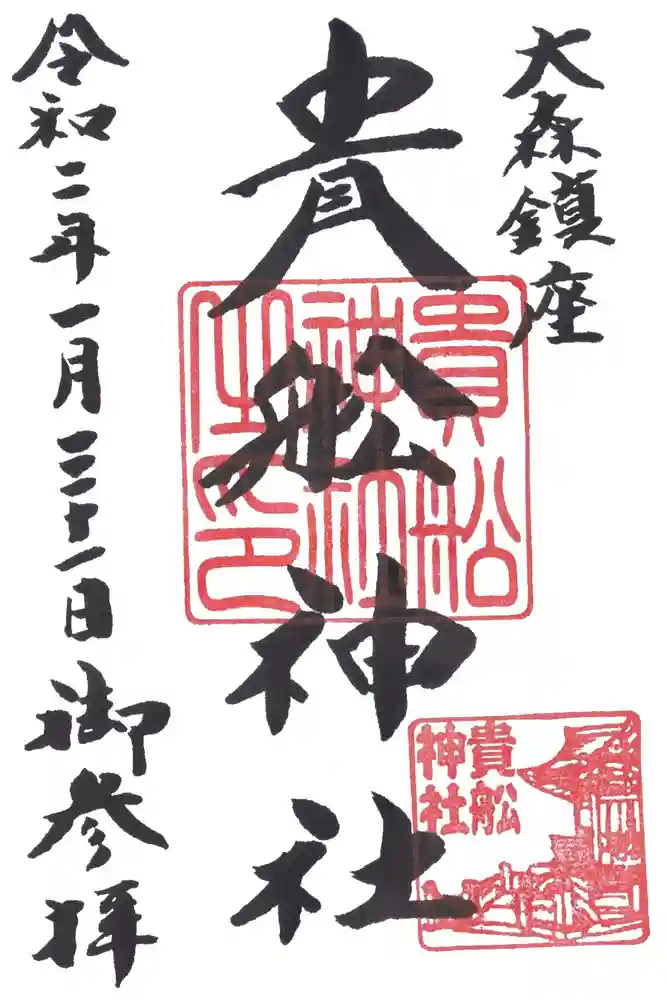 大森鎮座
貴舩神社
令和二年一月三十一日御参拝
貴舩
神社
貴舩
神社
之印